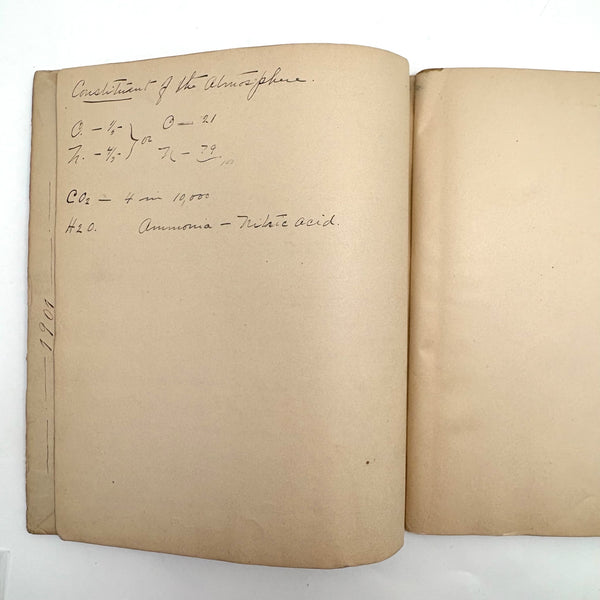 Constituent of the Atmosphere.
O. – 1/5 } or O – 21
N. – 4/5 } N – 79
100
CO2 – 4 in 10,000
H2O. Ammonia – Nitric acid.
1901